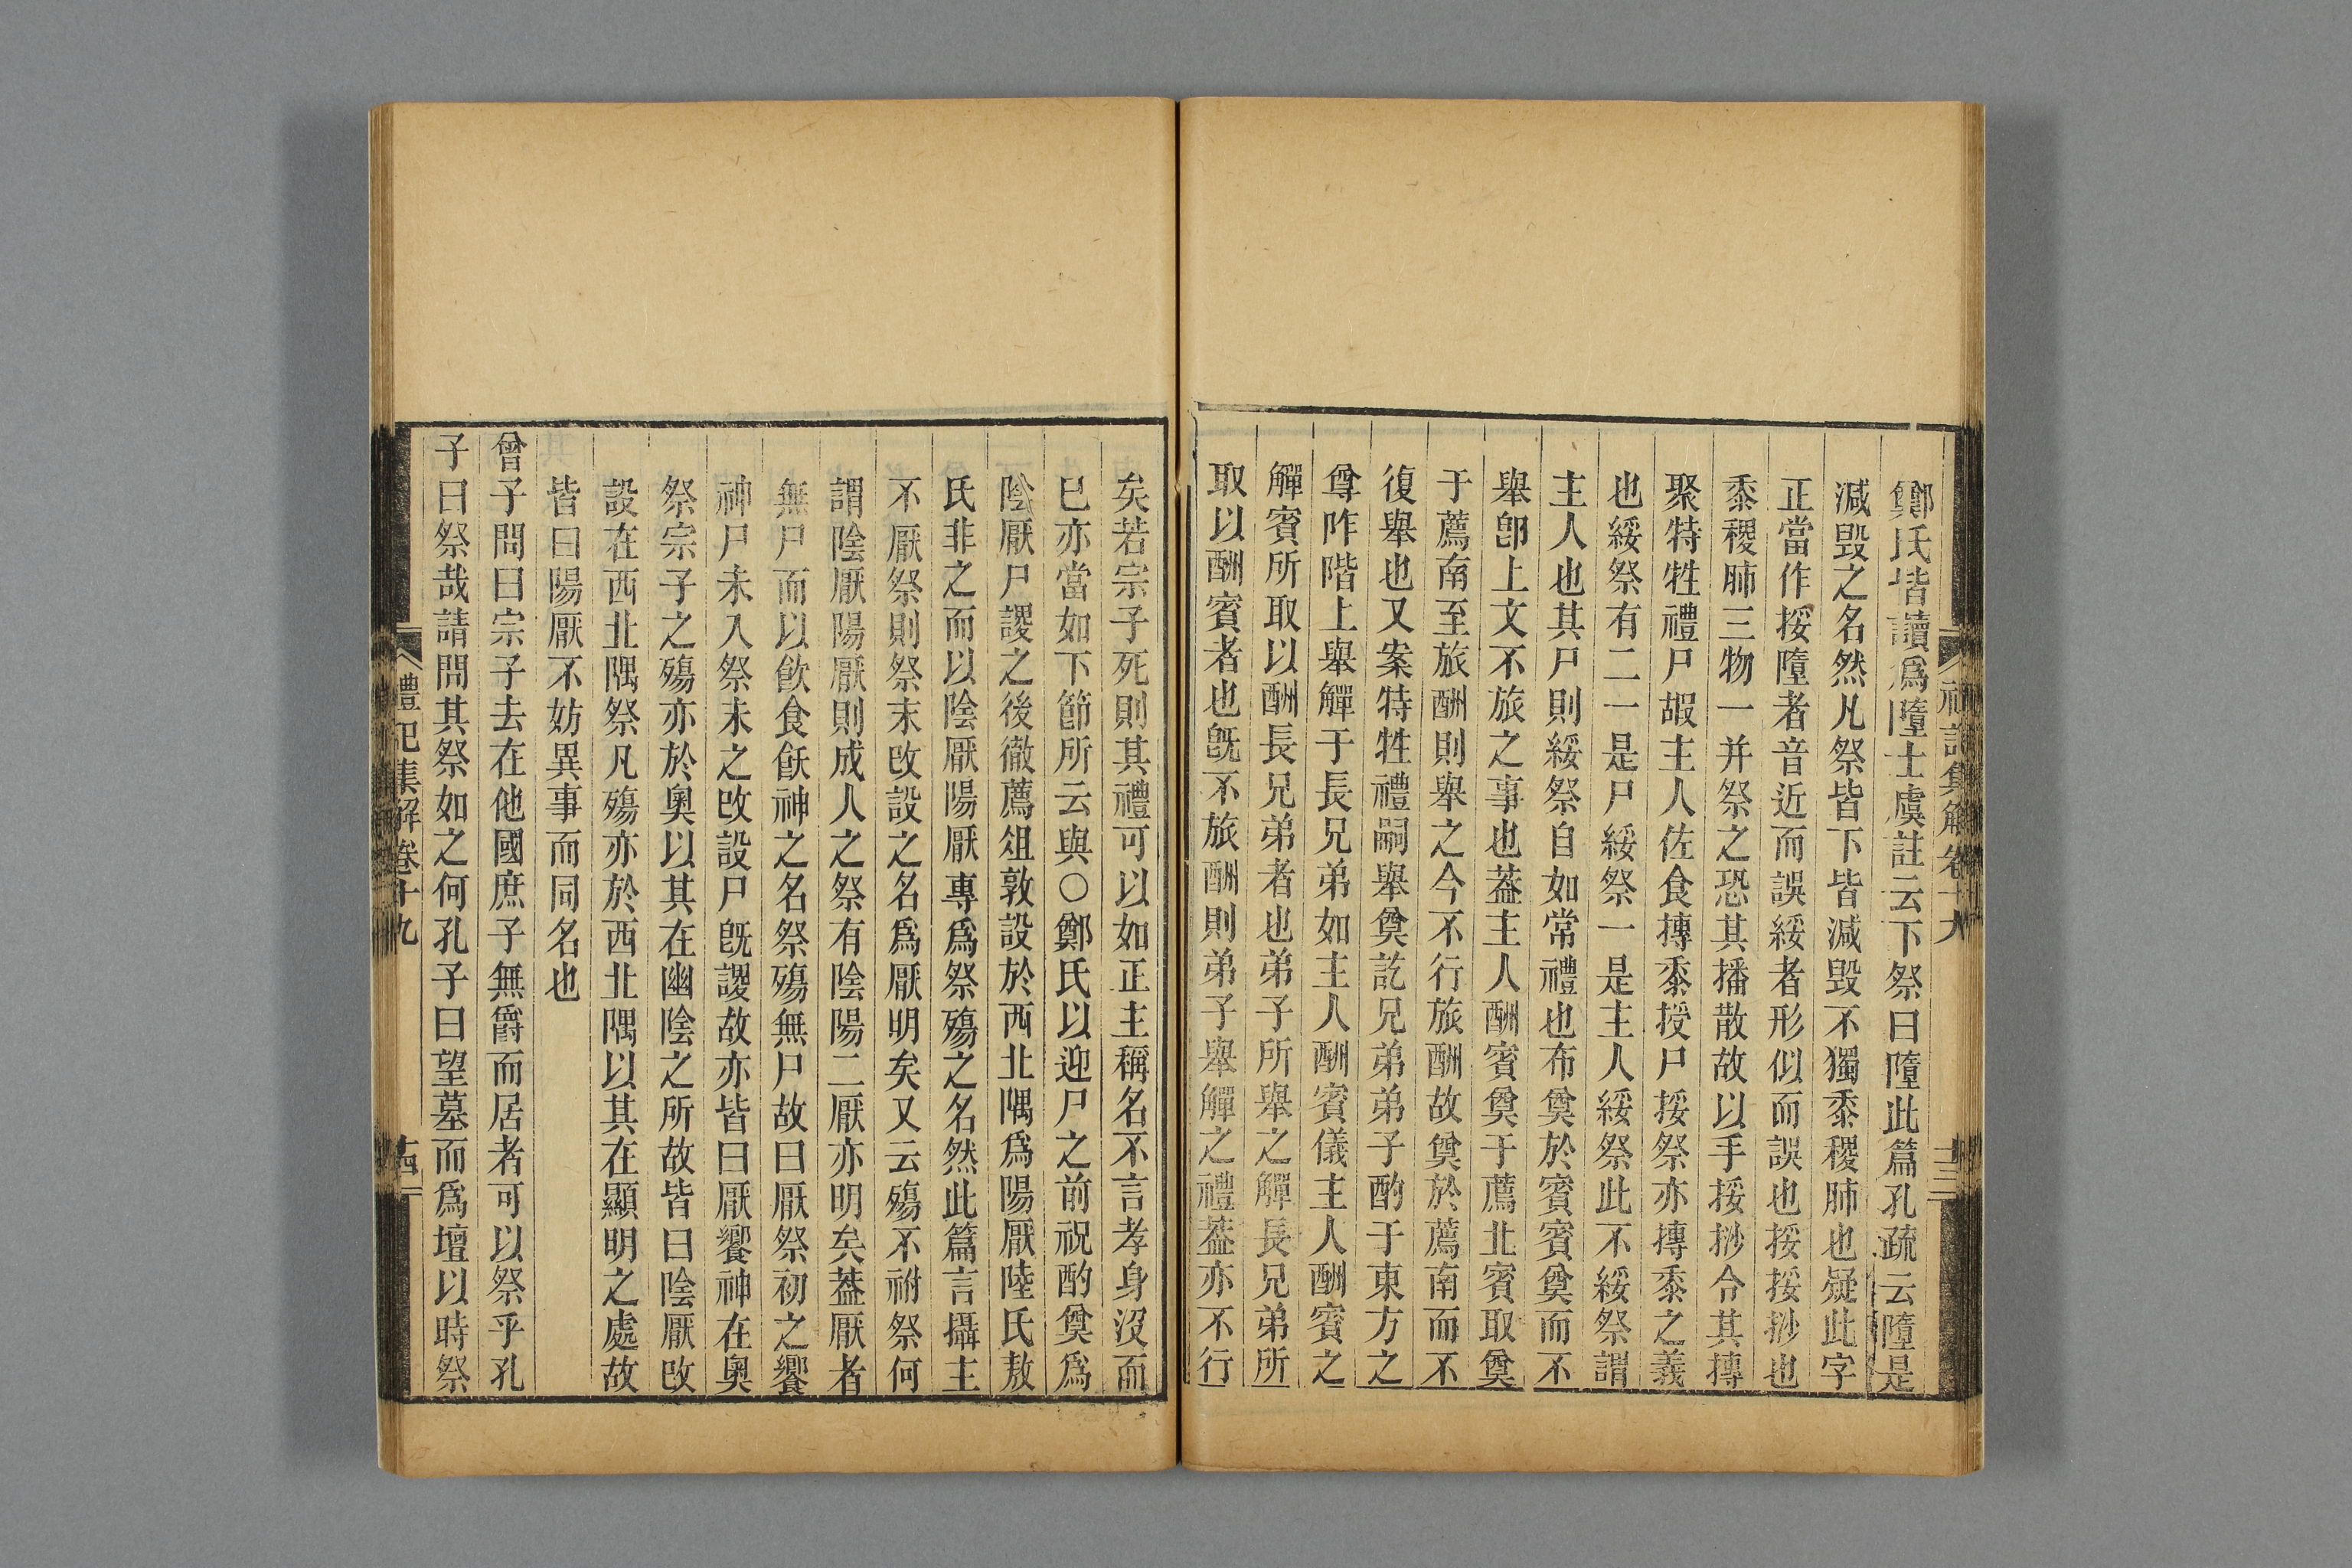 鄭氏皆讀爲隋士虞註云下祭曰隋此篇孔疏云隋是
減毀之名然凡祭皆下皆減毀不獨黍稷肺也疑此字
正當作挼隋者音近而誤綏者形似而誤也挼挼挱也
黍稷肺三物一并祭之恐其播散故以手挼挱合其摶
聚特牲禮尸嘏主人佐食摶黍授尸挼祭亦摶黍之義
也綏祭有二一是尸綏祭一是主人綏祭此不綏祭謂
主人也其尸則綏祭自如常禮也布奠於賓賓奠而不
舉卽上文不旅之事也葢主人酬賓奠于薦北賓取奠
于薦南至旅酬則舉之今不行旅酬故奠於薦南而不
復舉也又案特牲禮嗣舉奠訖兄弟弟子酌于東方之
尊阼階上舉觶于長兄弟如主人酬賓儀主人酬賓之
觶賓所取以酬長兄弟者也弟子所舉之觶長兄弟所
取以酬賓者也旣不旅酬則弟子舉觶之禮葢亦不行
矣若宗子死則其禮可以如正主稱名不言孝身沒而
已亦當如下節所云與○鄭氏以迎尸之前祝酌奠爲
陰厭尸謖之後徹薦俎敦設於西北隅爲陽厭陸氏敖
氏非之而以陰厭陽厭專爲祭殤之名然此篇言攝主
不厭祭則祭末改設之名爲厭明矣又云殤不祔祭何
謂陰厭陽厭則成人之祭有陰陽二厭亦明矣葢厭者
無尸而以飮食飫神之名祭殤無尸故曰厭祭初之饗
神尸未入祭末之改設尸旣謖故亦皆曰厭饗神在奧
祭宗子之殤亦於奧以其在幽陰之所故皆曰陰厭改
設在西北隅祭凡殤亦於西北隅以其在顯明之處故
皆曰陽厭不妨異事而同名也
曾子問曰宗子去在他國庶子無爵而居者可以祭乎孔
子曰祭哉請問其祭如之何孔子曰望墓而爲壇以時祭
禮記集解卷十九
十四